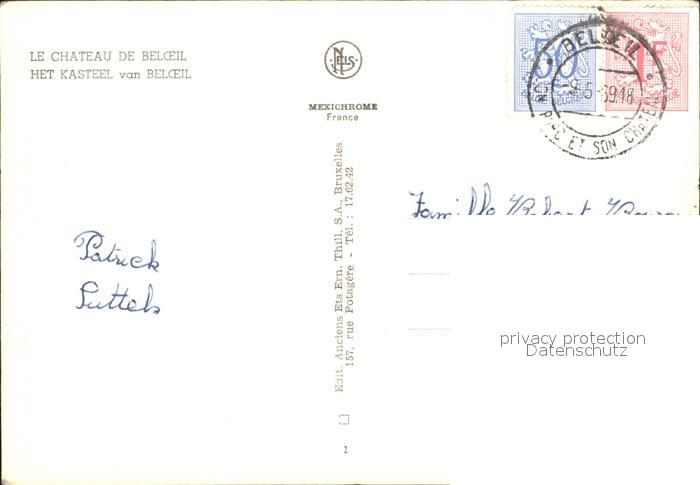 LE CHATEAU DE BELŒIL
HET KASTEEL van BELŒIL
NELS
MEXICHROME
France
BELOEIL
9-5-69.18
PARC ET SON CHATEAU
50
1F
Famille
Patrick
Luttels
Edit. Anciens Ets Ern. Thill. S.A., Bruxelles
157, rue Potagère - Tél. : 17.62.42
1
privacy protection
Datenschutz